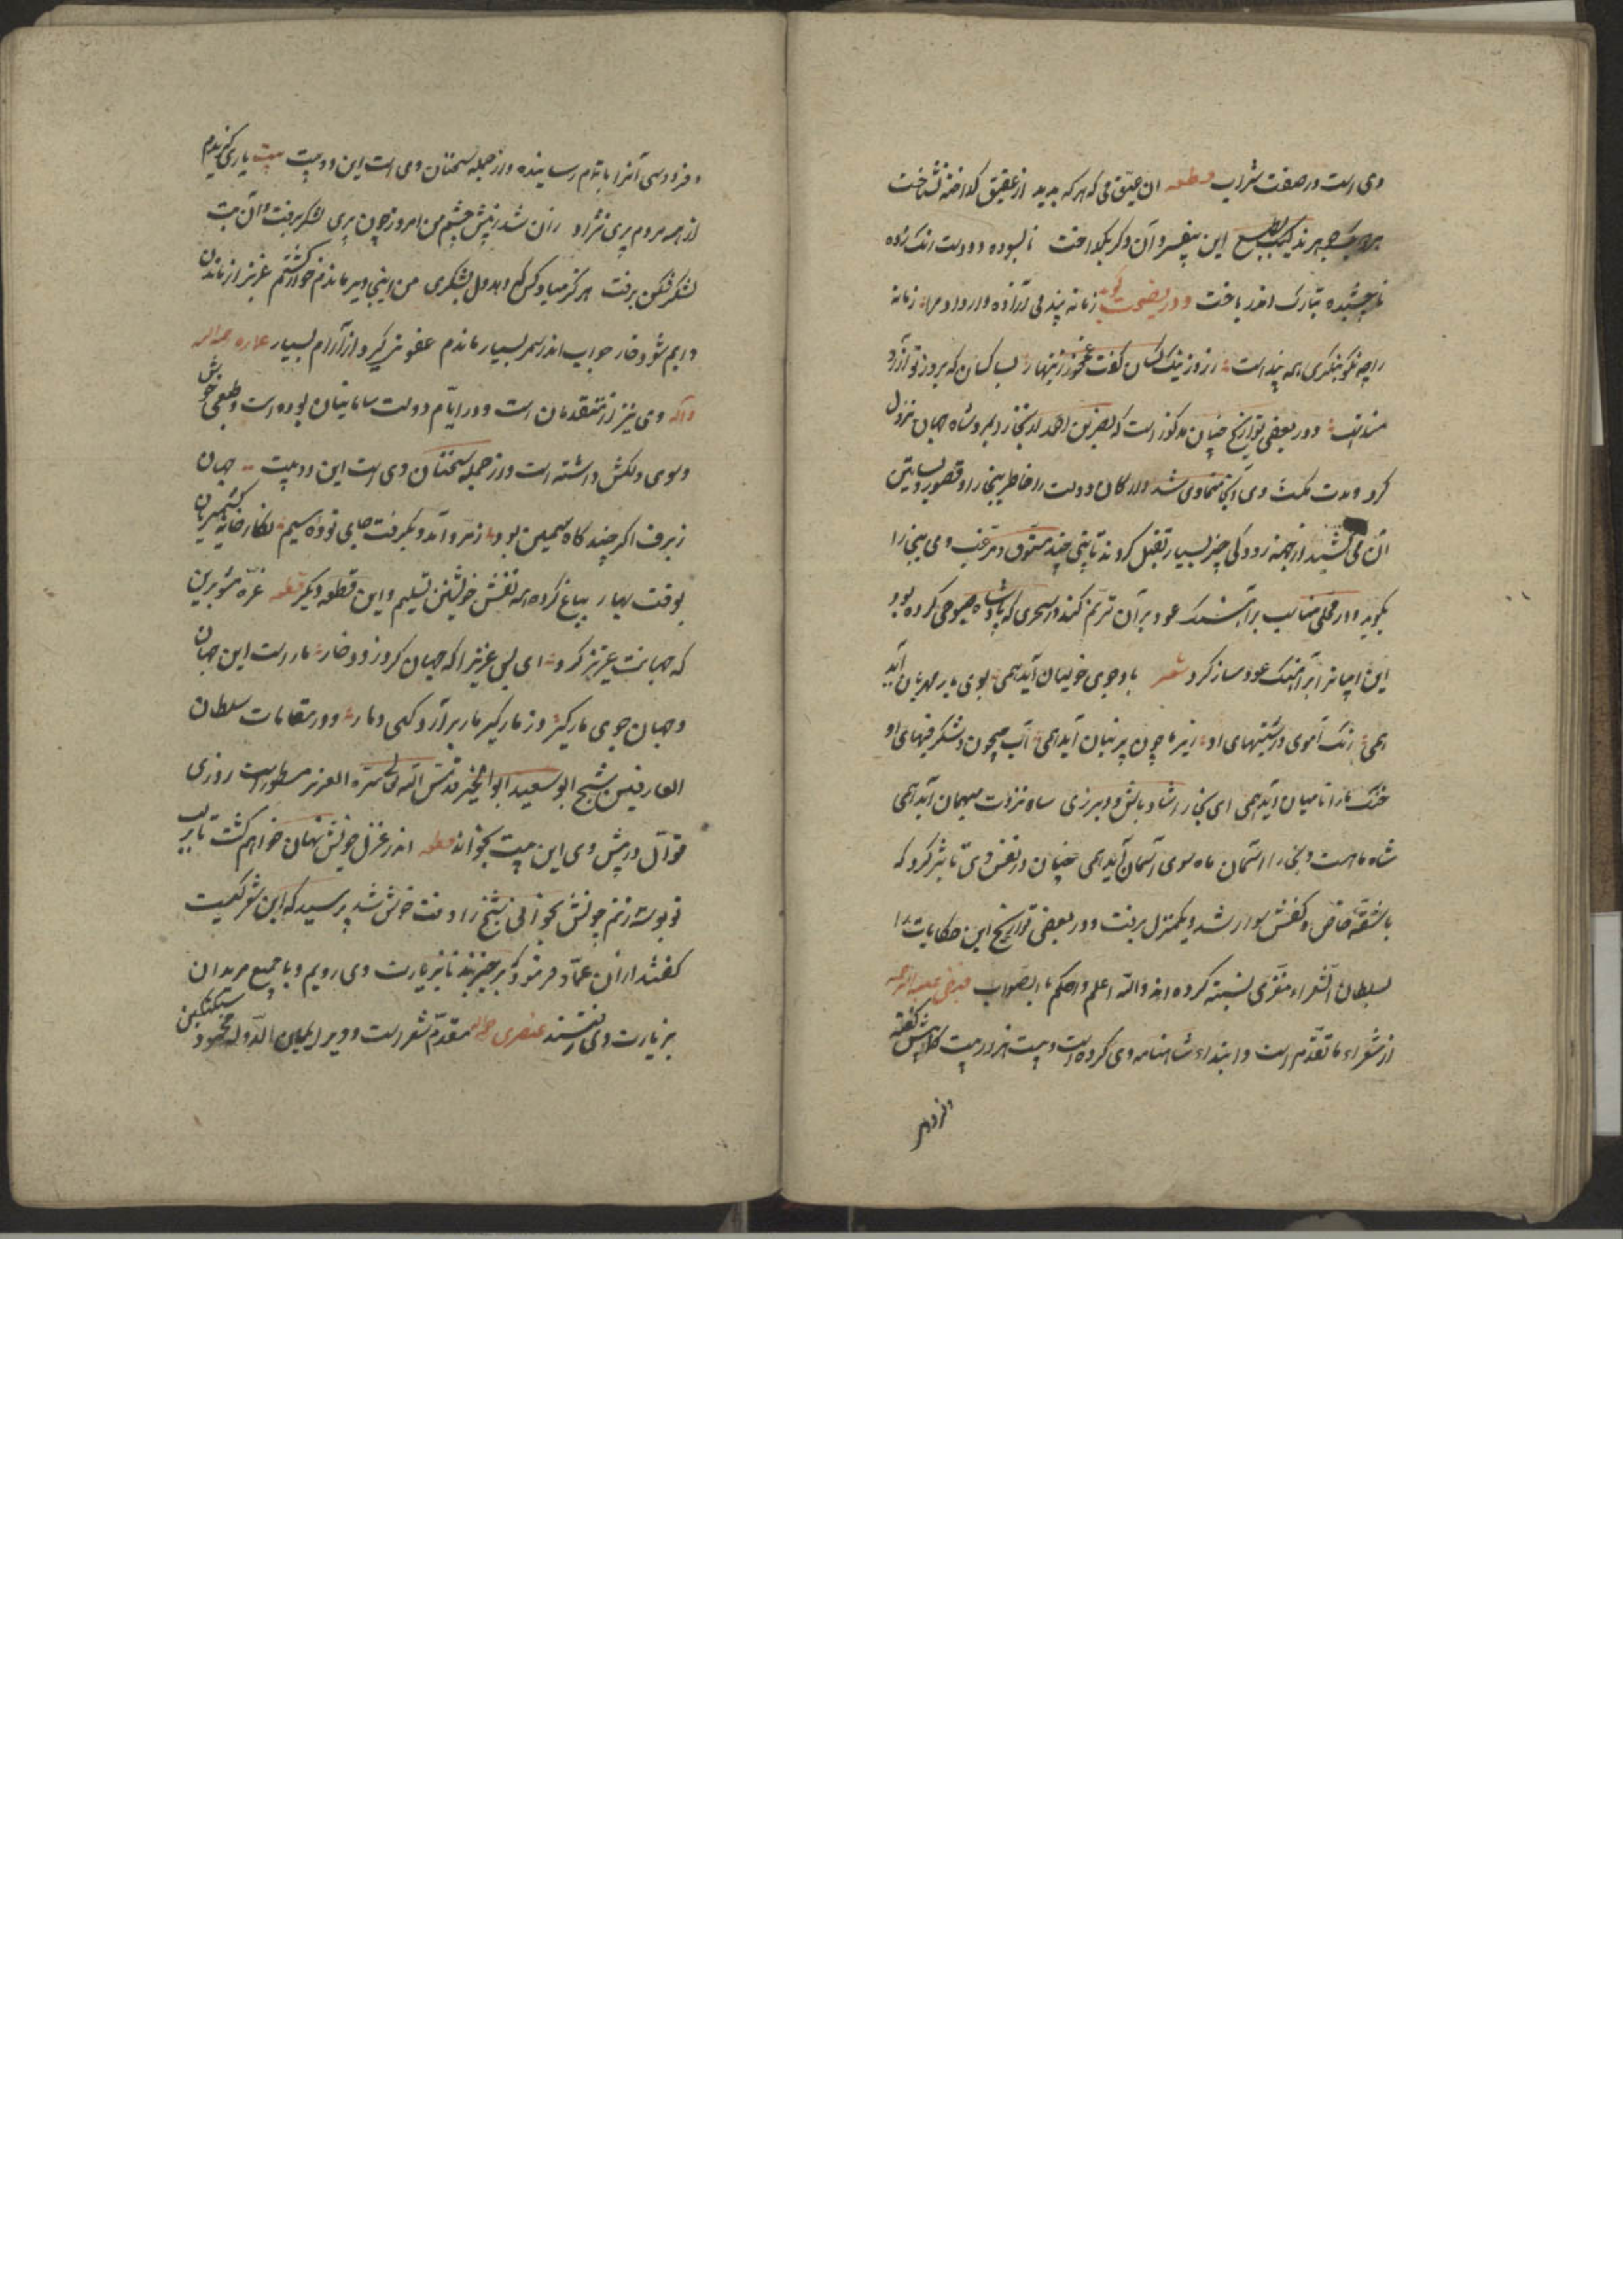 وی است در صفت شراب قطعه آن عقیق می که هر که بدید از عقیق گداخته نشناخت
هر دو یک جوهرند لیک بطبع این بیفسرد و آن دگر بگداخت نابسوده دو دست رنگ زده
ناچشیده بتارک اندر تاخت و در نصیحت گوید زمانه پندی آزاده وار داد مرا زمانه
را چو نکو بنگری همه پند است ز روز نیک کسان گفت غم مخور زینهار بسا کسان که بروز تو آرزو
مند است و در بعضی تواریخ چنان مذکور است که نصر بن احمد از بخارا بمرو شاه جهان نزول
کرد و مدت مکث وی آنجا متمادی شد و ارکان دولت را خاطر ببخارا و قصور و بساتین
آن می کشید از جهة رودکی چیز بسیار تقبل کردند تا بیتی چند مشوق و مرغب وی ببخارا
بگوید و در محلی مناسب بر آهنگ عود بر آن ترنم کند در سحری که پادشاه صبوحی کرده بود
این ابیات را بر آهنگ عود ساز کرد شعر باد جوی مولیان آید همی بوی یار مهربان آید
همی ریگ آموی و درشتیهای او زیر پا چون پرنیان آید همی آب جیحون و شگرفیهای او
خنگ ما را تا میان آید همی ای بخارا شاد باش و دیر زی شاه نزدت میهمان آید همی
شاه ماهست و بخارا آسمان ماه سوی آسمان آید همی چنان در نفس وی تأثیر کرد که
با شقه خاص و کفش سوار شد و یکمنزل برفت و در بعضی تواریخ این حکایات را
بسلطان الشعراء معزی نسبت کرده اند والله اعلم واحکم بالصواب
از شعراء ما تقدم است و ابتداء شاهنامه وی کرده است و بیست هزار بیت کمابیش گفته
و فردوسی
و فردوسی آنرا باتمام رسانیده و از جمله سخنان وی است این دو بیت بیت یاری گزیدم
از همه مردم پری نژاد زان شد ز پیش چشم من امروز چون پری لشکر برفت و آن بت
لشکر شکن برفت هرگز مباد کس که دهد دل بلشکری من اینجا دیر ماندم خوار گشتم عزیز از ماندن
دایم شود خوار چو آب اندر شمر بسیار ماند عفونت گیرد از آرام بسیار عماره
وی نیز از متقدمان است و در ایام دولت سامانیان بوده است و طبعی خوش
و سوی دلکش داشته است و از جمله سخنان وی است این دو بیت جهان
ز برف اگر چند گاه سیمین بود زمرد آمد و بگرفت جای توده سیم نگارخانه کشمیریان
بوقت بهار بباغ کرد همه نقش خویشتن تسلیم و این قطعه دیگر قطعه غره مشو بدین
که جهانت عزیز کرد ای بس عزیز را که جهان کرد زود خوار مار است این جهان
و جهان جوی مارگیر وز مارگیر مار برآرد گهی دمار و در مقامات سلطان
العارفین شیخ ابو سعید ابو الخیر قدس الله تعالی سره العزیز مسطور است روزی
قوال در پیش وی این بیت بخواند قطعه اندر غزل خویش نهان خواهم گشت تا بر لب
تو بوسه زنم چونش بخوانی شیخ را وقت خوش شد پرسید که این شعر کیست
گفتند از آن عماره فرمود که برخیزید تا بزیارت وی رویم و با جمیع مریدان
بزیارت وی رفتند عنصری مقدم شعراست و دیر یمین الدوله محمود سبکتکین